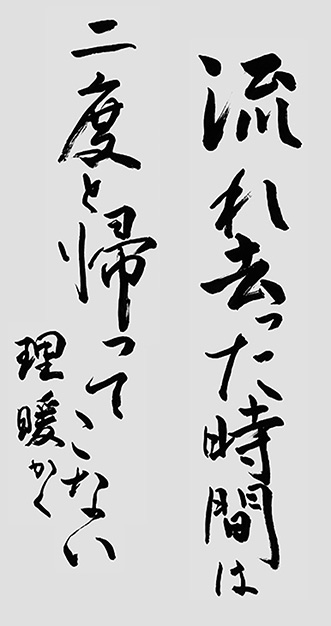 流れ去った時間は
二度と帰ってこない
理暖かく